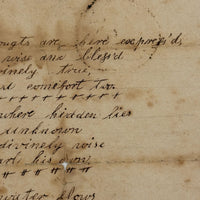 ougts are here express'd,
wise and bless'd
vinely true,
nd comfort too.
where hidden lies
unknown
divinely wise
art his own,
water flows